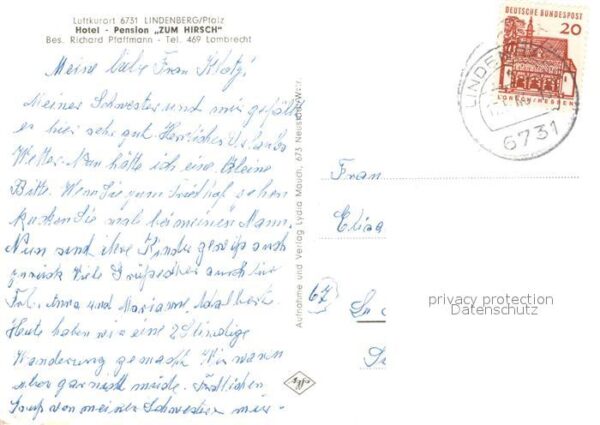 Luftkurort 6731 LINDENBERG/Pfalz
Hotel - Pension „ZUM HIRSCH"
Bes. Richard Pfaffmann - Tel. 469 Lambrecht
Meine liebe Frau Klotz!
Meiner Schwester und mir gefällt
es hier sehr gut. Herrliches Urlaubs
Wetter. Nun hätte ich eine kleine
Bitte. Wenn Sie zum Friedhof gehen
kucken Sie mal bei meinen Mann.
Nun sind ihre Kinder gewiß auch
zurück. Viele Grüße auch für
Frl. Anna und Mariann, Adalbert.
Heute haben wir eine 2 Stündige
Wanderung gemacht. Wir waren
aber garnicht müde. Herzlichen
Gruß von meiner Schwester mir.
Aufnahme und Verlag Lydia Mauch, 673 Neustadt/Wstr.
DEUTSCHE BUNDESPOST
20
LORSCH/HESSEN
LINDEN
6731
Frau
Elisa
67
privacy protection
Datenschutz